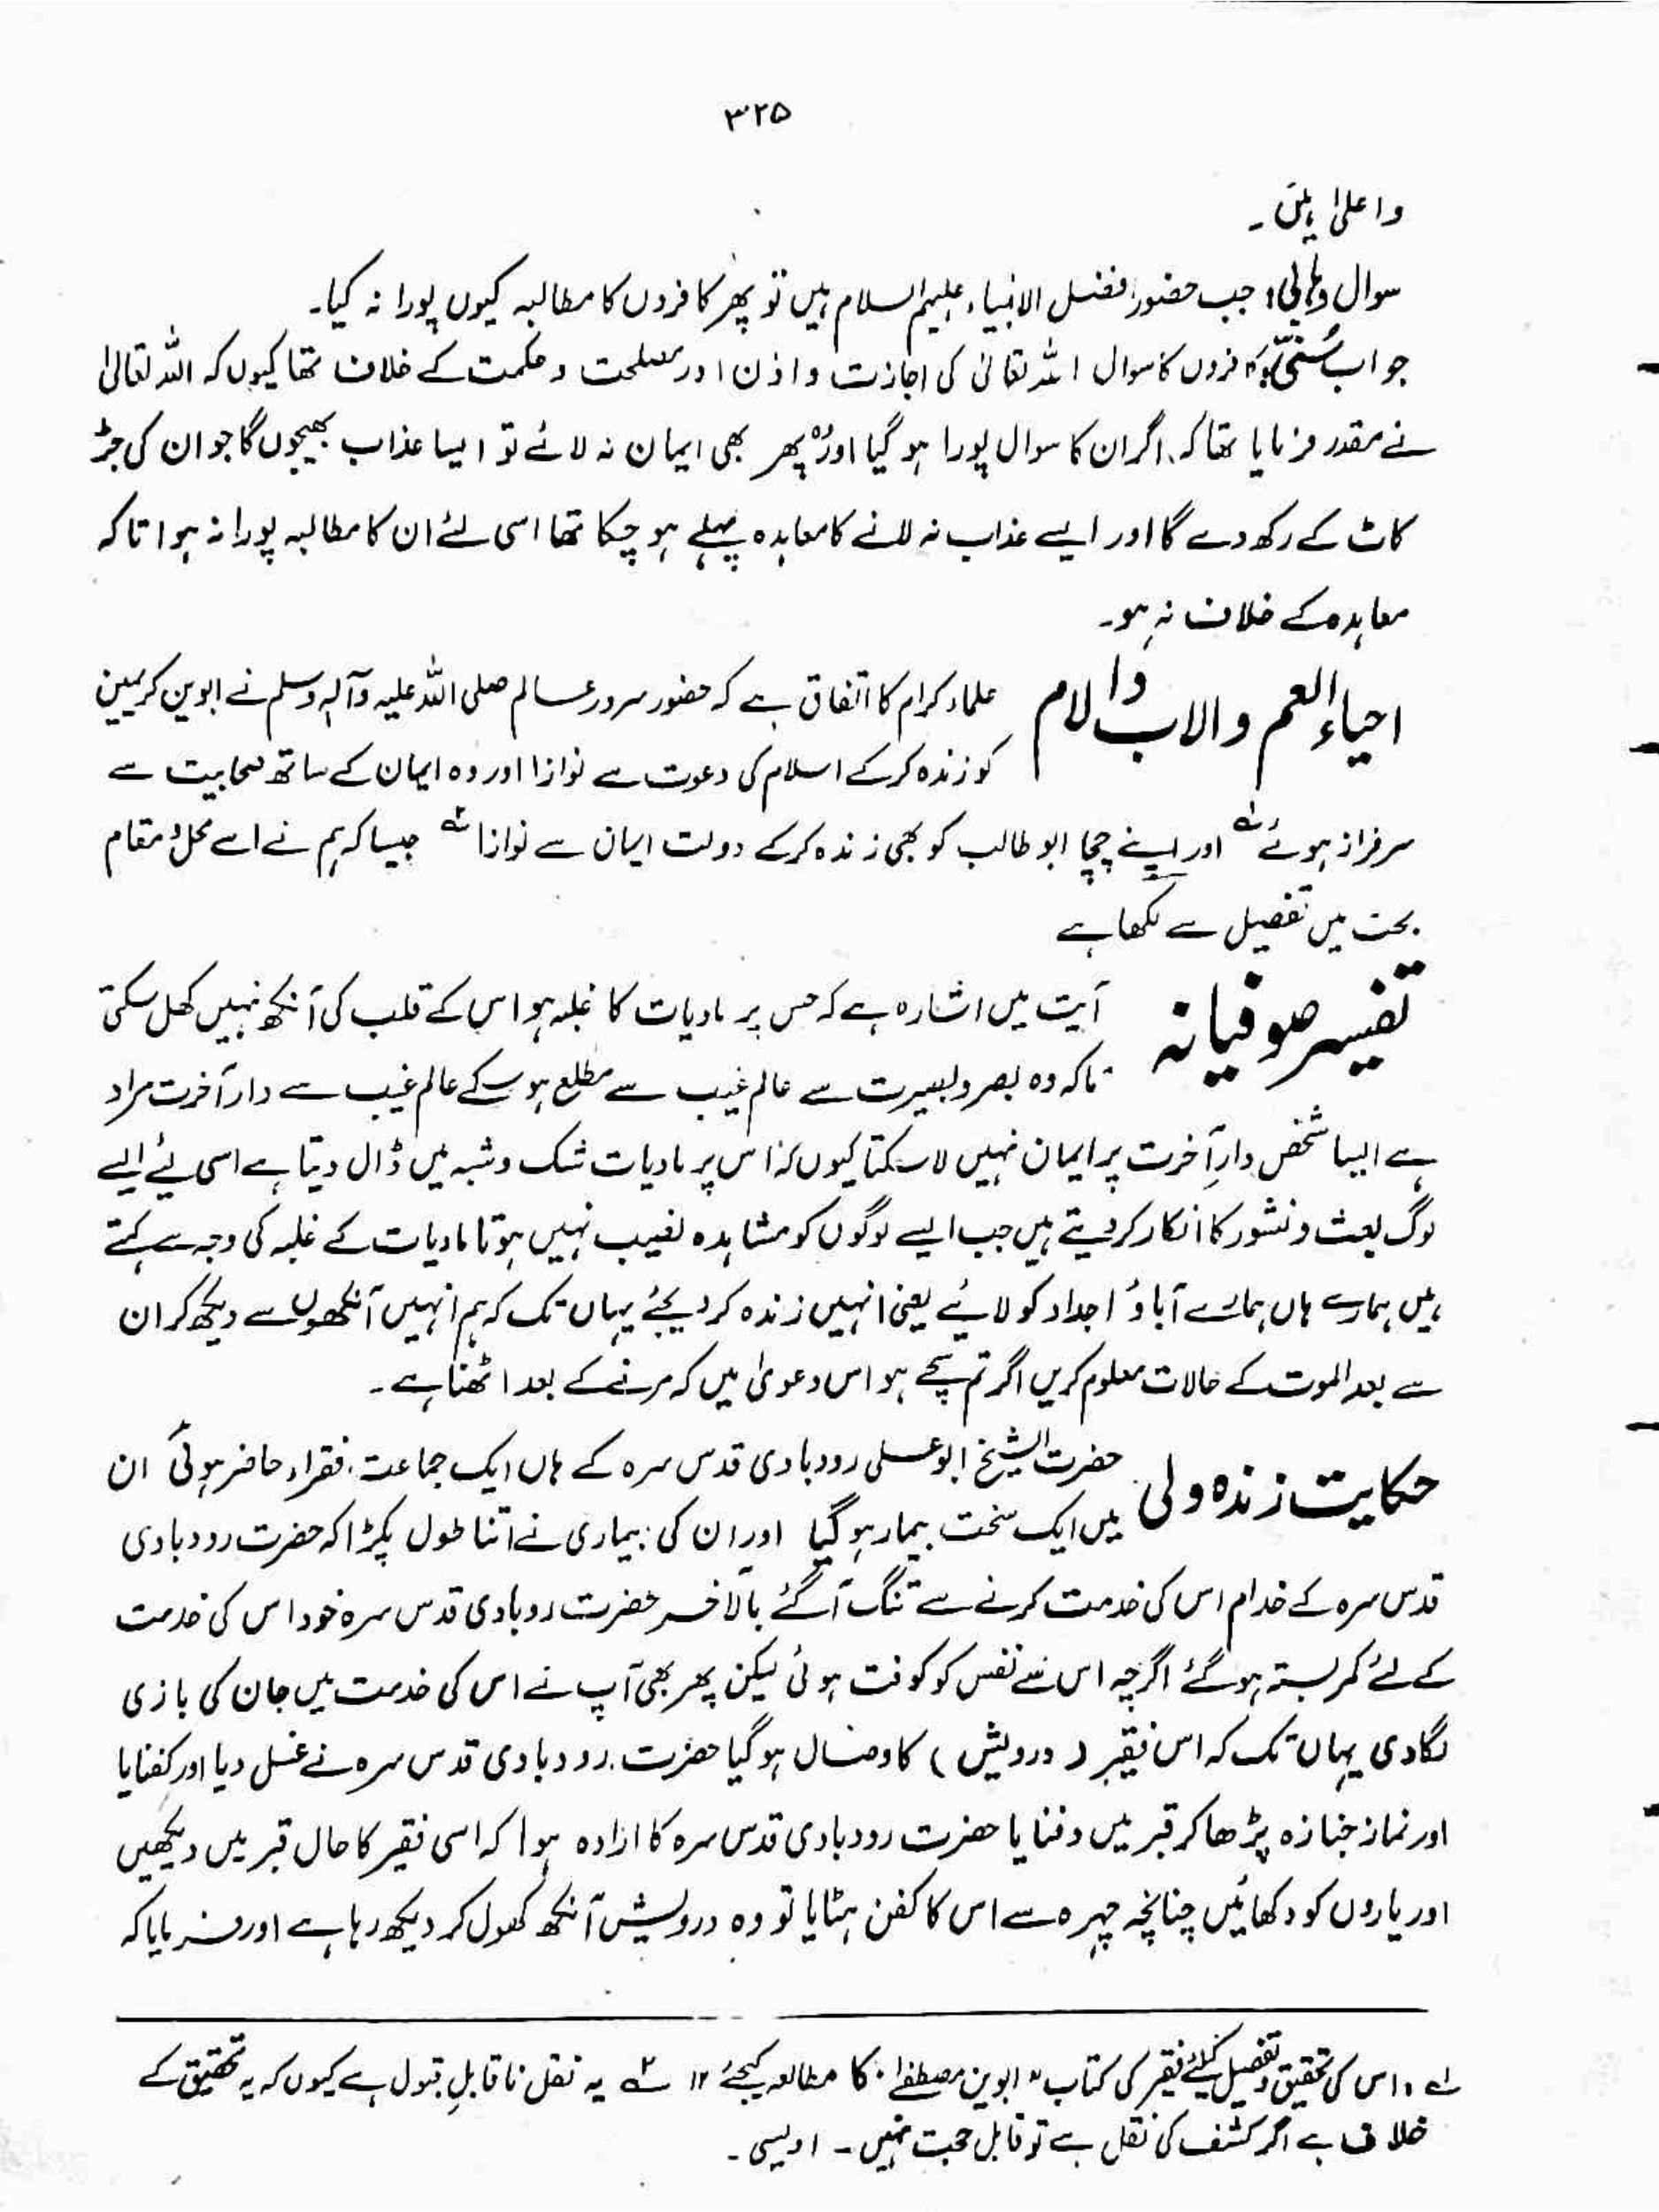 ۳۲۵
واعلیٰ ہیں ۔
سوال وہابی؛ جب حضور افضل الانبیاء علیہم السلام ہیں تو پھر کافروں کا مطالبہ کیوں پورا نہ کیا۔
جواب سُنّی؛ کافروں کا سوال اللہ تعالیٰ کی اجازت و اذن اور مصلحت و حکمت کے خلاف تھا کیوں کہ اللہ تعالیٰ
نے مقدر فرمایا تھا کہ اگر ان کا سوال پورا ہو گیا اور وہ پھر بھی ایمان نہ لائے تو ایسا عذاب بھیجوں گا جو ان کی جڑ
کاٹ کے رکھ دے گا اور ایسے عذاب نہ لانے کا معاہدہ پہلے ہو چکا تھا اسی لئے ان کا مطالبہ پورا نہ ہوا تا کہ
معاہدہ کے خلاف نہ ہو۔
احیاء العم والاب والام علماء کرام کا اتفاق ہے کہ حضور سرور عالم صلی اللہ علیہ وآلہ وسلم نے ابوین کریمین
کو زندہ کر کے اسلام کی دعوت سے نوازا اور وہ ایمان کے ساتھ صحابیت سے
سرفراز ہوئے لہ اور اپنے چچا ابو طالب کو بھی زندہ کر کے دولت ایمان سے نوازا ۲ہ جیسا کہ ہم نے اسے محل و مقام
بحث میں تفصیل سے لکھا ہے
تفسیر صوفیانہ آیت میں اشارہ ہے کہ جس پر مادیات کا غلبہ ہو اس کے قلب کی آنکھ نہیں کھل سکتی
تاکہ وہ بصر و بصیرت سے عالم غیب سے مطلع ہو سکے عالم غیب سے دار آخرت مراد
ہے ایسا شخص دارِ آخرت پر ایمان نہیں لا سکتا کیوں کہ اس پر مادیات شک و شبہ میں ڈال دیتا ہے اسی لیے ایسے
لوگ بعث و نشور کا انکار کر دیتے ہیں جب ایسے لوگوں کو مشاہدہ نصیب نہیں ہوتا مادیات کے غلبہ کی وجہ سے کہتے
ہیں ہمارے ہاں ہمارے آباؤ اجداد کو لائیے یعنی انہیں زندہ کر دیجئے یہاں تک کہ ہم انہیں آنکھوں سے دیکھ کر ان
سے بعد الموت کے حالات معلوم کریں اگر تم سچے ہو اس دعویٰ میں کہ مرنے کے بعد اٹھنا ہے ۔
حکایت زندہ ولی حضرت الشیخ ابو علی رودبادی قدس سرہ کے ہاں ایک جماعت فقراء حاضر ہوئی ان
میں ایک سخت بیمار ہو گیا اور ان کی بیماری نے اتنا طول پکڑا کہ حضرت رودبادی
قدس سرہ کے خدام اس کی خدمت کرنے سے تنگ آ گئے بالآخر حضرت رودبادی قدس سرہ خود اس کی خدمت
کے لئے کمر بستہ ہو گئے اگرچہ اس سے نفس کو کوفت ہوئی لیکن پھر بھی آپ نے اس کی خدمت میں جان کی بازی
لگا دی یہاں تک کہ اس فقیر ( درویش ) کا وصال ہو گیا حضرت رودبادی قدس سرہ نے غسل دیا اور کفنایا
اور نماز جنازہ پڑھا کر قبر میں دفنایا حضرت رودبادی قدس سرہ کا ارادہ ہوا کہ اسی فقیر کا حال قبر میں دیکھیں
اور یاروں کو دکھائیں چنانچہ چہرہ سے اس کا کفن ہٹایا تو وہ درویش آنکھ کھول کر دیکھ رہا ہے اور فرمایا کہ
لہ ، اس کی تحقیق و تفصیل کیلئے فقیر کی کتاب "ابوین مصطفےٰ" کا مطالعہ کیجئے ۱۲ ۲ہ یہ نقل ناقابلِ قبول ہے کیوں کہ یہ تحقیق کے
خلاف ہے اگر کشف کی نقل ہے تو قابل حجت نہیں ۔ اویسی ۔